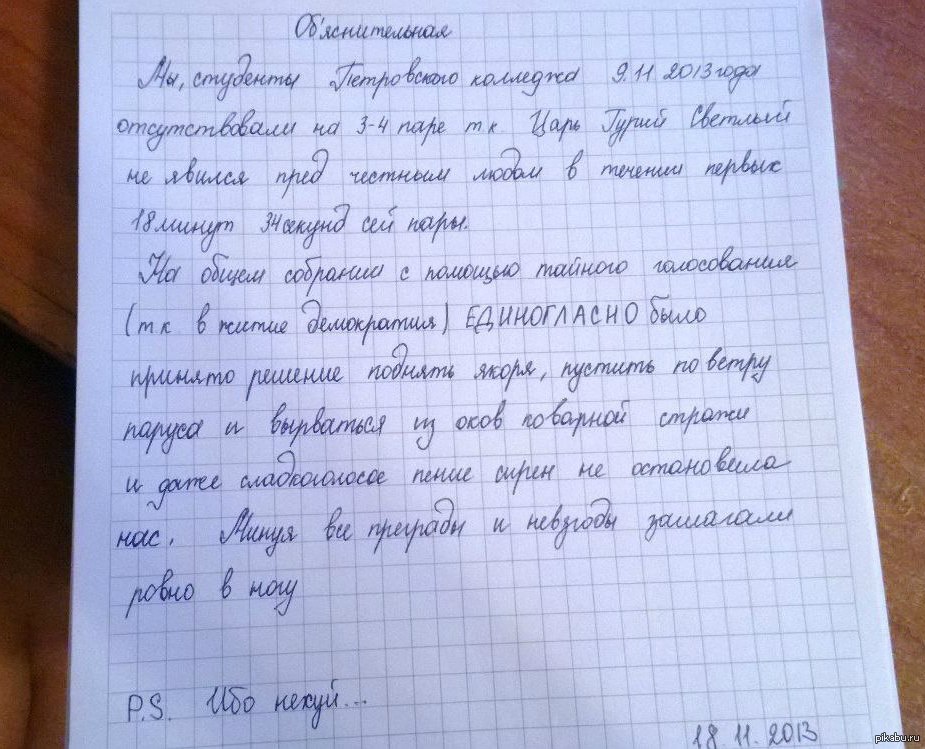 Об'яснительная
Мы, студенты Петровского колледжа 9.11 2013 года
отсутствовали на 3-4 паре т к Царь Гурий Светлый
не явился пред честным людом в течении первых
18 минут 34 секунд сей пары.
На общем собрании с помощью тайного голосования
(т к в житие демократия) ЕДИНОГЛАСНО было
принято решение поднять якоря, пустить по ветру
паруса и вырваться из оков коварной стражи
и даже сладкоголосое пение сирен не остановила
нас. Минуя все преграды и невзгоды зашагали
ровно в ногу
P.S. Ибо нехуй...
18.11.2013
pikabu.ru